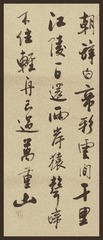 朝辭白帝彩雲間千里
江陵一日還兩岸猿聲啼
不住輕舟已過萬重山